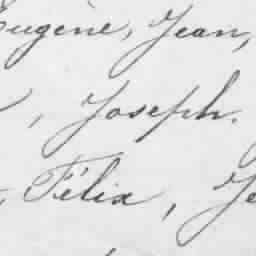 Eugène, Jean,
, Joseph.
, Félix, Je